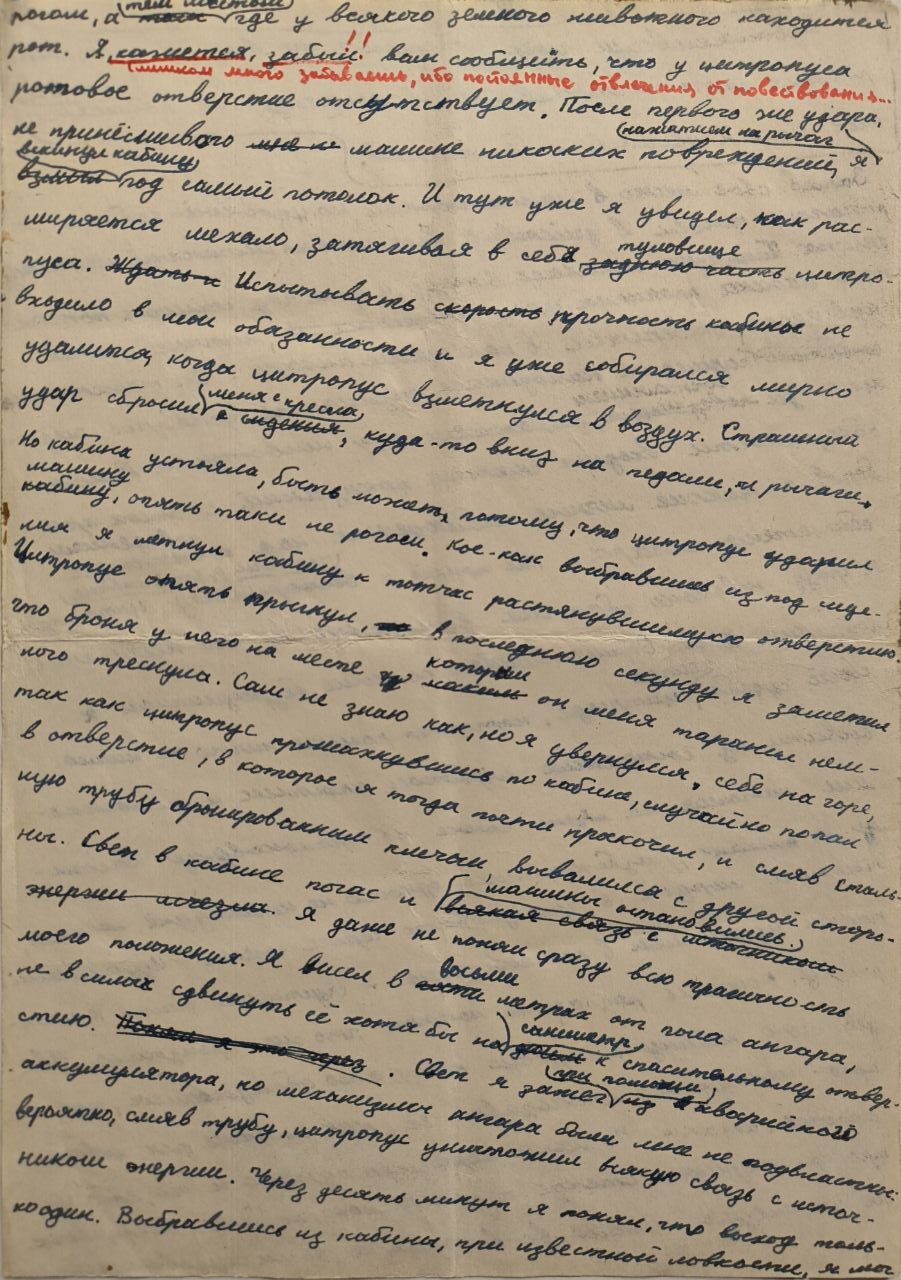 тем местом
рогом, а так где у всякого земного животного находится
рот. Я, кажется, забыл!! вам сообщить, что у цитропуса
слишком много забываешь, ибо постоянные отвлечения от повествования...
ротовое отверстие отсутствует. После первого же удара,
нажатием на рычаг
не принёсшего мне н машине никаких повреждений, я
вскинул кабину
взмыл под самый потолок. И тут уже я увидел, как рас-
ширяется лекало, затягивая в себя
туловище
заднюю часть цитро-
пуса. Ждать и Испытывать скорость прочность кабины не
входило в мои обязанности и я уже собирался мирно
удалится, когда цитропус взметнулся в воздух. Страшный
меня с кресла
удар сбросил с сиденья, куда-то вниз на педали, и рычаги.
Но кабина устояла, быть может, потому, что цитропус ударил
машину
кабину, опять таки не рогом. Кое-как выбравшись из под сиде-
ния я метнул кабину к тотчас растянувшемуся отверстию.
Цитропус опять прыгнул, но в последнюю секунду я заметил
что броня у него на месте
которым
он меня таранил нем-
ного треснула. Сам не знаю как, но я увернулся, себе на горе,
так как цитропус промахнувшись по кабине, случайно попал
в отверстие, в которое я тогда почти проскочил, и смяв сталь-
ную трубу бронированным плечом, вывалился с другой сторо-
машины остановились.
ны. Свет в кабине погас и всякая связь с источником
энергии исчезла. Я даже не понял сразу всю трагичность
восьми
моего положения. Я висел в пяти метрах от пола ангара,
сантиметр
не в силах сдвинуть её хотя бы на дюйм к спасительному отвер-
при помощи
стию. Понял я это через . Свет я зажег из аварийного
аккумулятора, но механизмы ангара были мне не подвластны:
вероятно, смяв трубу, цитропус уничтожил всякую связь с источ-
ником энергии. Через десять минут я понял, что выход толь-
ко один. Выбравшись из кабины, при известной ловкости, я мог